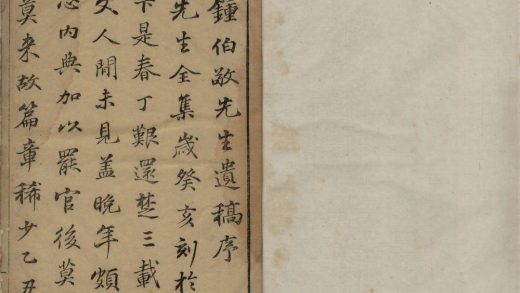 鍾伯敬先生遺稿序
先生全集歲癸亥刻於
下是春丁艱還楚三載
文人間未見盖晚年頗
心内典加以罷官後莫
莫來故篇章稀少乙丑